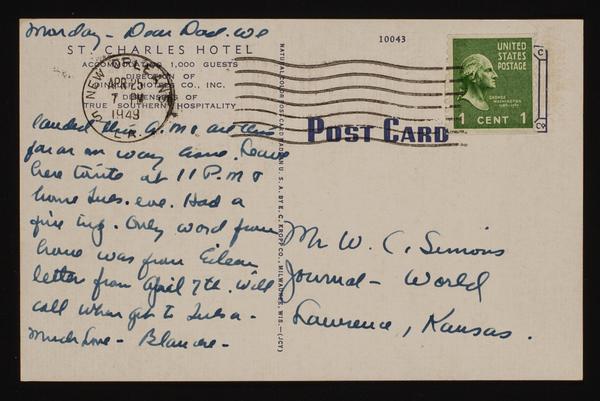 Monday - Dear Dad. We
ST. CHARLES HOTEL
ACCOMMODATING 1,000 GUESTS
DIRECTION OF
HOTEL CO., INC.
DISPENSERS OF
TRUE SOUTHERN HOSPITALITY
NEW ORLEANS
APR 25
7 PM
1949
LA.
landed this A.M.
far on our way home. Leave
here tonite at 11 P.M. &
home Tues. eve. Had a
fine trip. Only word from
home was from Eileen
letter from April 7th. Will
call when get to Tulsa -
Much love - Blanche -
10043
POST CARD
NATURAL COLOR POST CARD MADE IN U.S.A. BY E. C. KROPP CO., MILWAUKEE, WIS.—(JCY)
UNITED
STATES
POSTAGE
GEORGE
WASHINGTON
1 CENT 1
Mr W. C. Simons
Journal - World
Lawrence, Kansas.